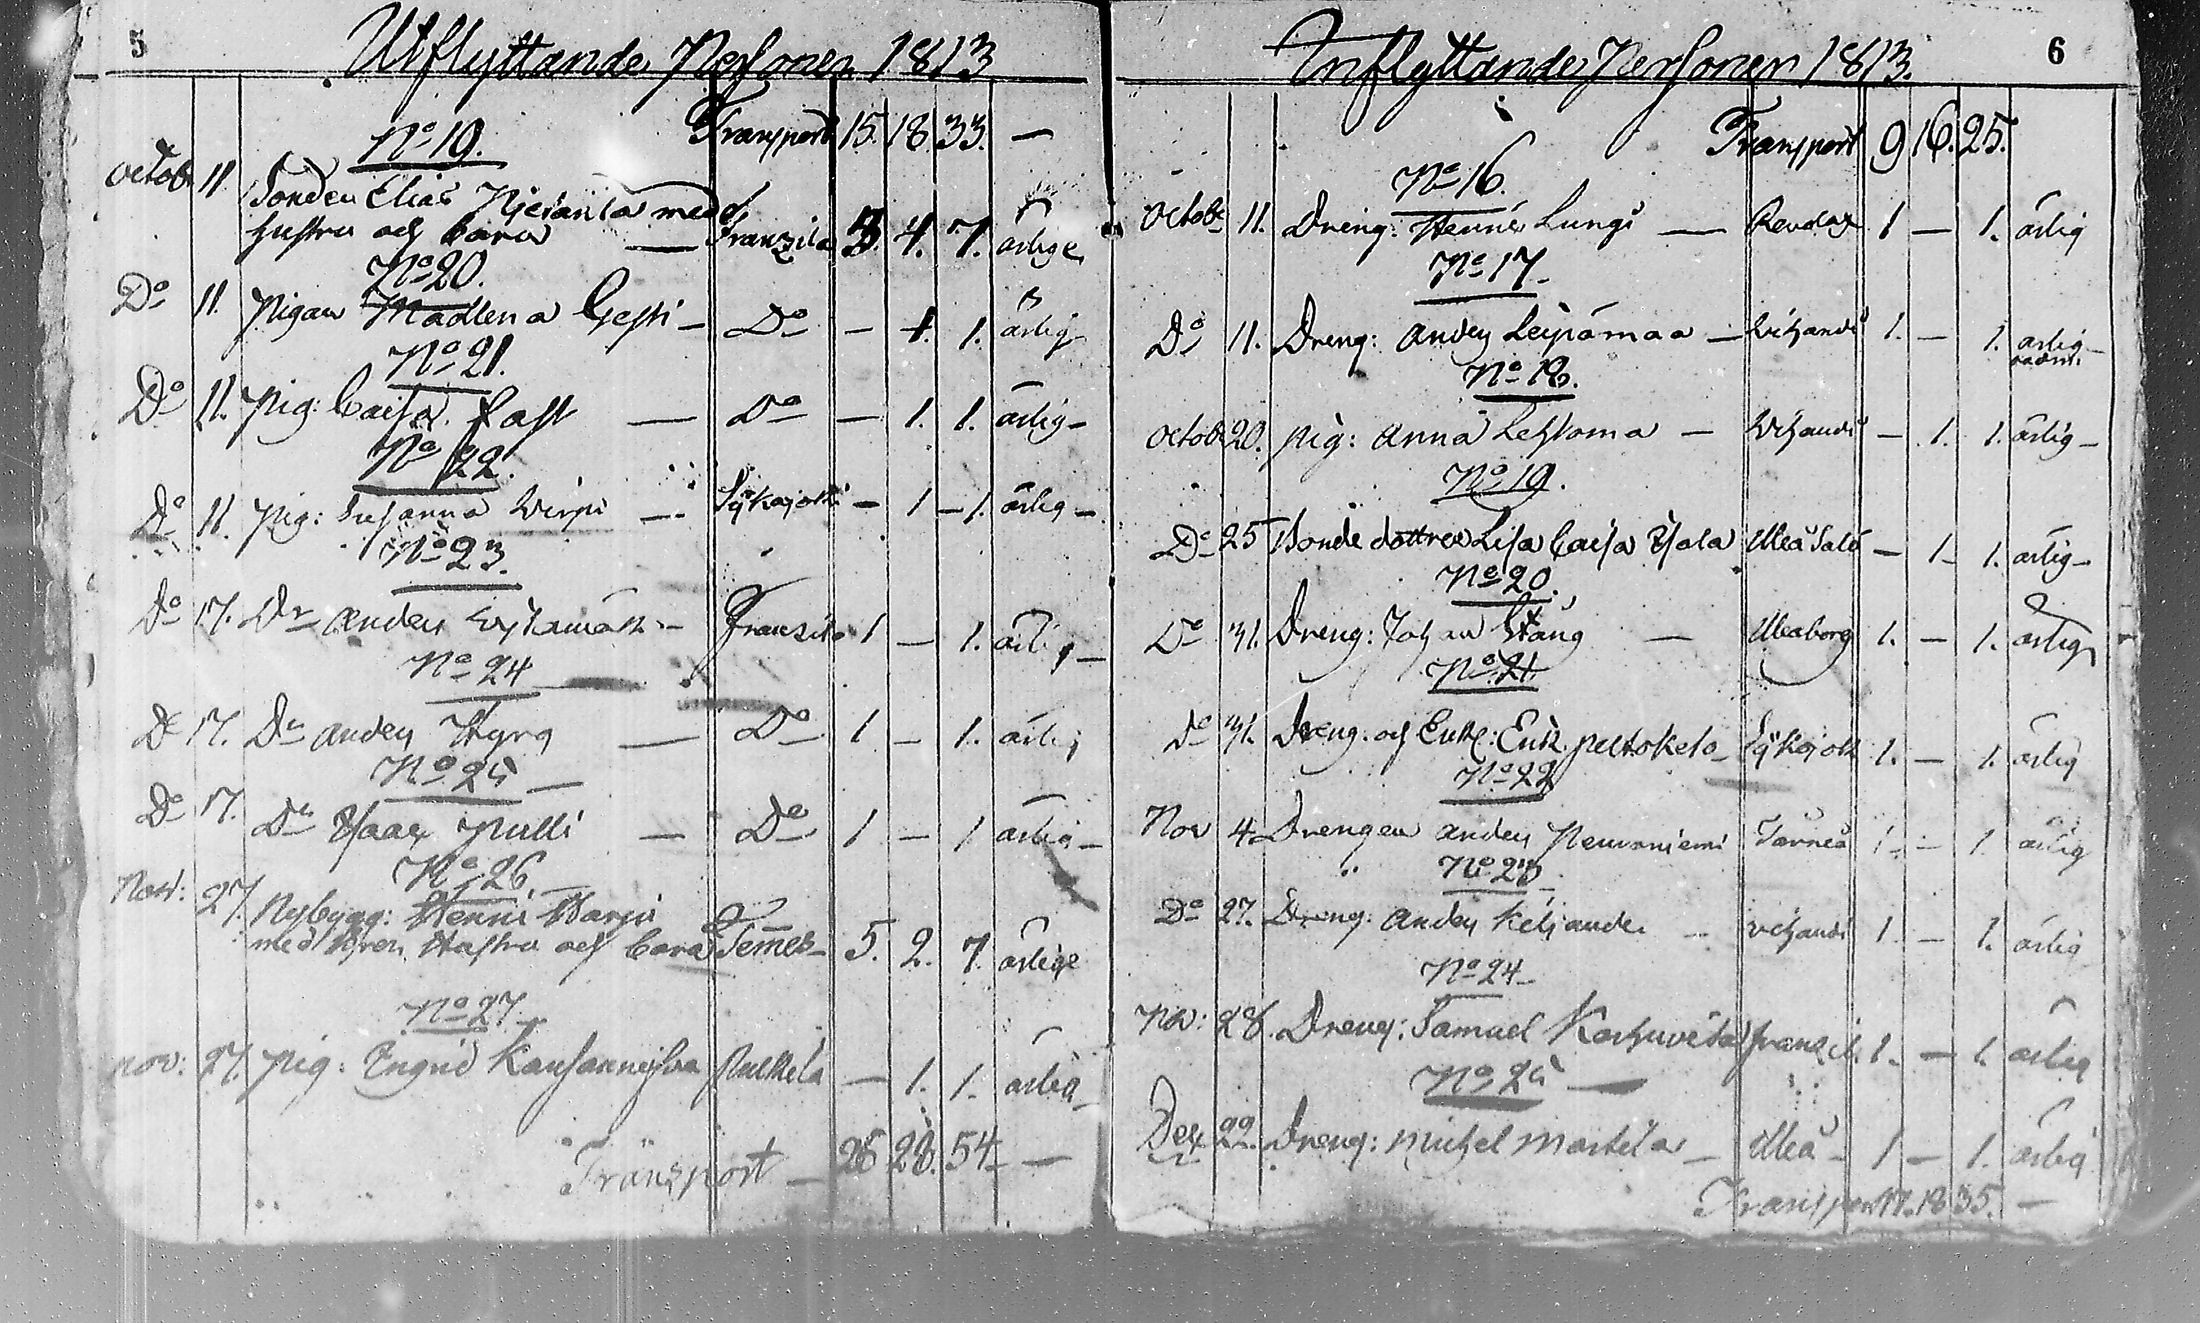 5
Utflyttande Personer 1813
Transport 15. 18. 33. —
No 19.
Octob 11. Bonden Elias med
hustru och barn — Franzila 3. 4. 7. ärlige
No 20.
Do 11. Pigan Madlena — Do — 1. 1. ärlig
No 21.
Do 11. Pig: Caisa — Do — 1. 1. ärlig —
No 22.
Do 11. Pig: Susanna Wirpi — Sijkajocki — 1 — 1. ärlig —
No 23.
Do 17. Dr Anders — Franzila 1 — 1. ärlig —
No 24
Do 17. Dr Anders — Do 1 — 1. ärlig
No 25
Do 17. Dr Isaac Pulli — Do 1 — 1 ärlig —
No 26
Nov: 27. Nybygg: Henric Harju
med Hustru och barn Temes — 5. 2. 7. ärlige
No 27.
Nov: 27. Pig: Ingrid Pulkila — 1. 1. ärlig —
Transport — 26 28. 54 — —
6
Inflyttande Personer 1813.
Transport 9 16. 25.
No 16.
Octob 11. Dreng: Henric Lungi — Revolax 1 — 1. ärlig
No 17
Do 11. Dreng: Anders Leipämaa — Wihandi 1. — 1. ärlig
No 18.
Octob 20. Pig: Anna — Wihandi — 1. 1. ärlig —
No 19.
Do 25 Bonde dottren Lisa Caisa Ylala Uleå Salo — 1 — 1. ärlig —
No 20.
Do 31. Dreng: Johan Stång — Uleaborg 1. — 1. ärlig
No 21.
Do 31. Dreng: och Enkl: Eric Peltokelo — Sijkajock 1. — 1. ärlig
No 22
Nov 4 Drengen Anders Neuvoniemi Törneå 1. — 1. ärlig
No 23
Do 27. Dreng: Anders Keljander wihandi 1. — 1. ärlig
No 24 —
Nov: 28. Dreng: Samuel Karhuvesa 1. — 1. ärlig
No 25 —
Dec 22. Dreng: Michel Martila — Uleå — 1 — 1. ärlig
Transport 17. 18 35. —